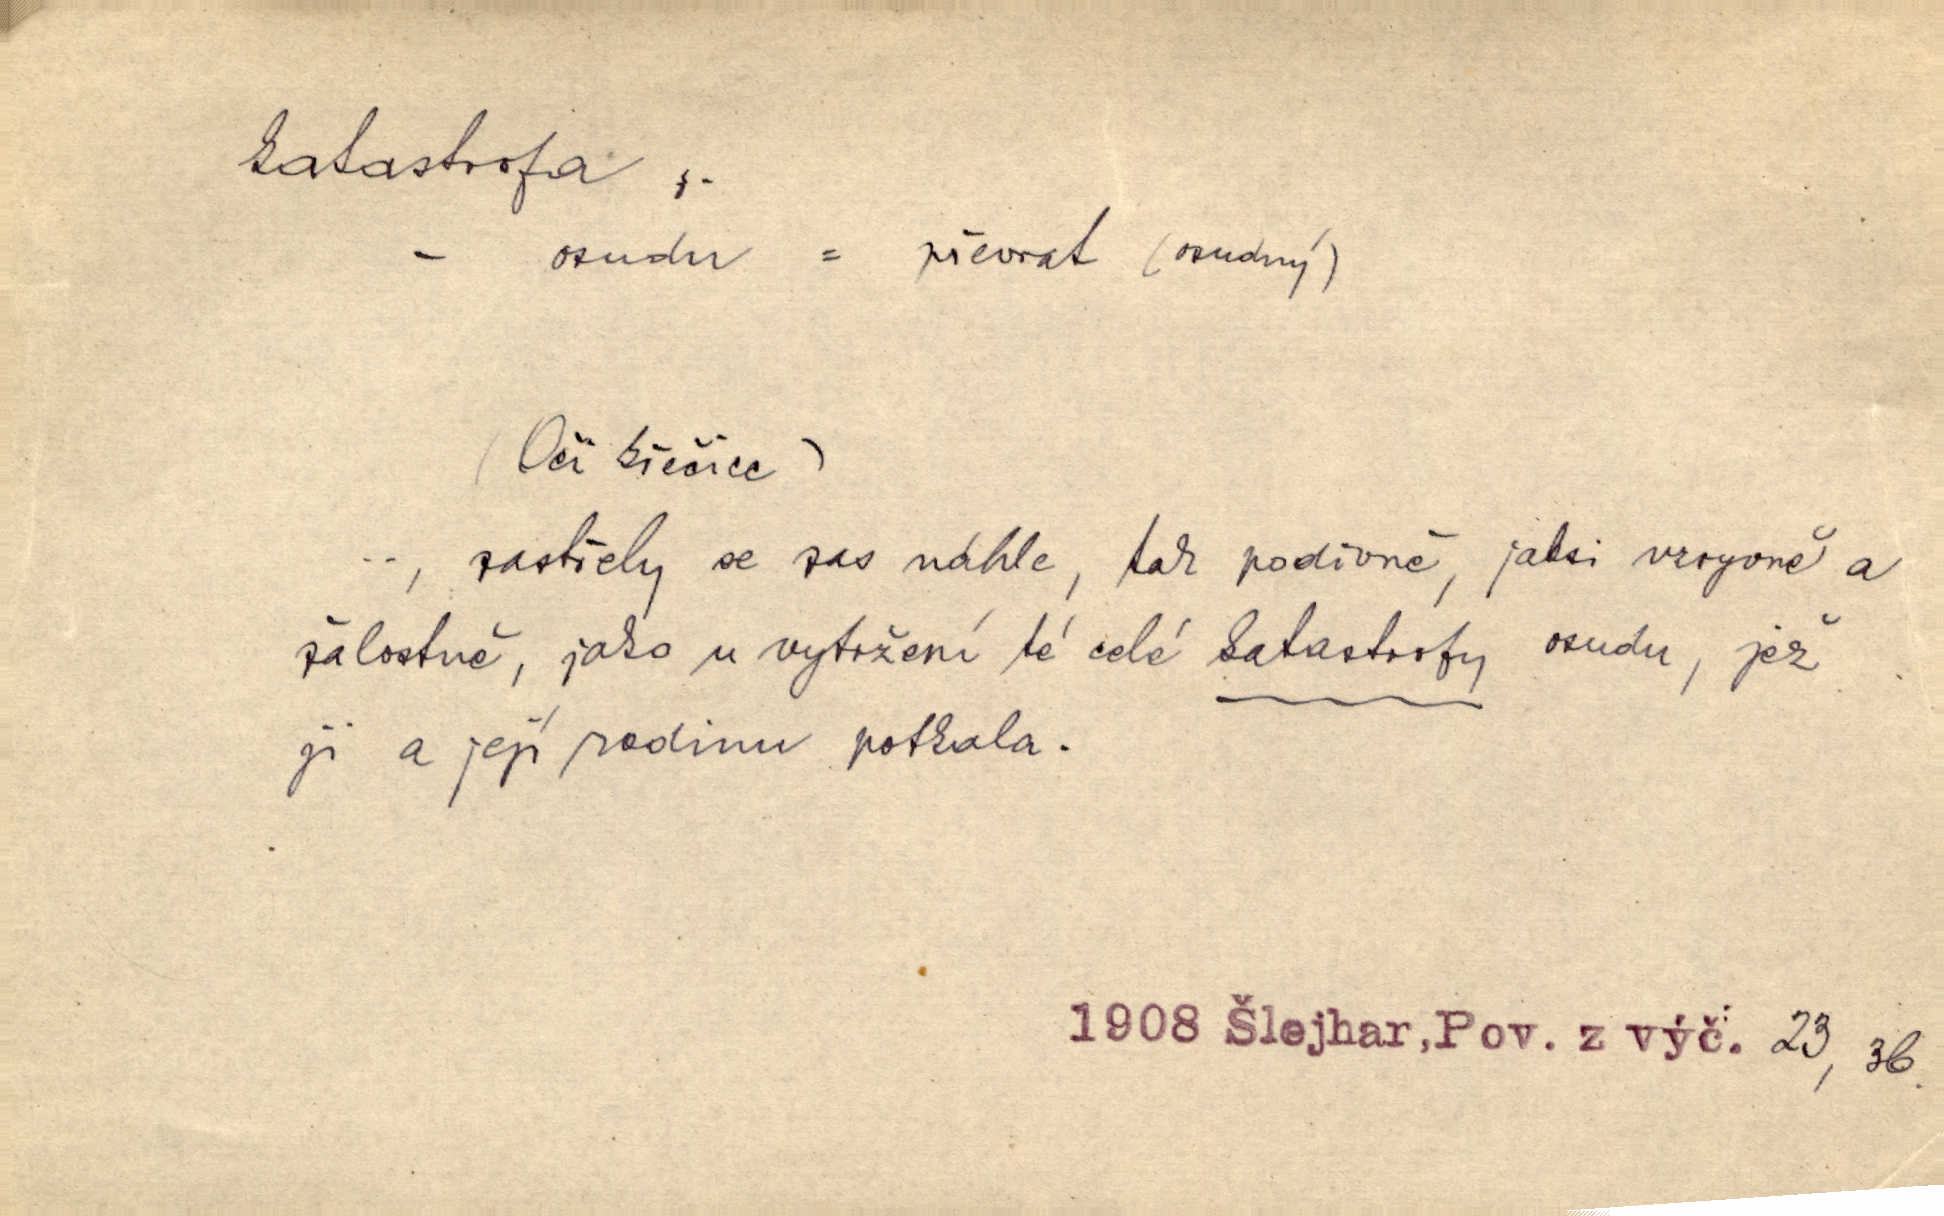 katastrofa, ž.
- osudu = převrat (osudný)
(Oči křečice)
.., zastřely se zas náhle, tak podivně, jaksi vroyoně a
žalostně, jako u vytržení té celé katastrofy osudu, jež
ji a její rodinu potkala.
1908 Šlejhar, Pov. z výč. 23, 36.